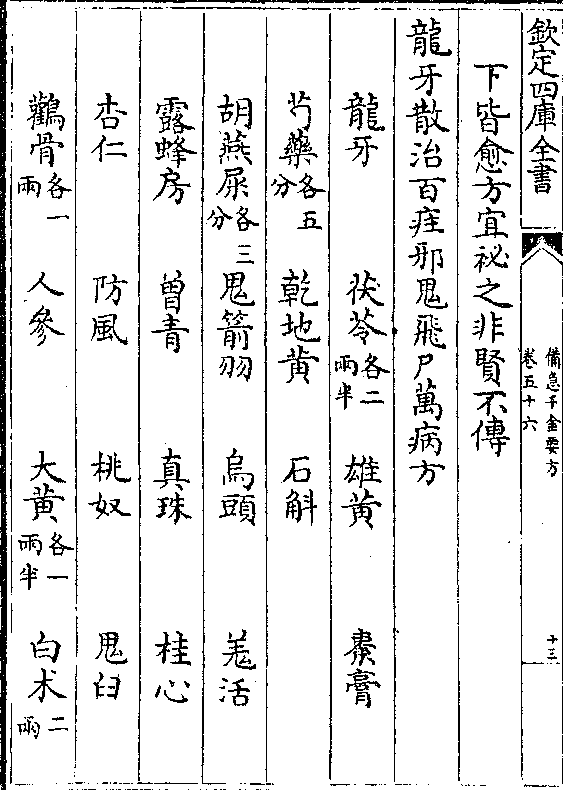 欽定四庫全書
備急千金要方
卷五十六
十三
下皆愈方宜祕之非賢不傳
龍牙散治百疰邪鬼飛尸萬病方
龍牙 茯苓各二兩半 雄黄 棗膏
芍藥各五分 乾地黄 石斛
胡燕屎各三分 鬼箭羽 烏頭 羗活
露蜂房 曾青 真珠 桂心
杏仁 防風 桃奴 鬼臼
鸛骨各一兩 人參 大黄各一兩半 白术二兩